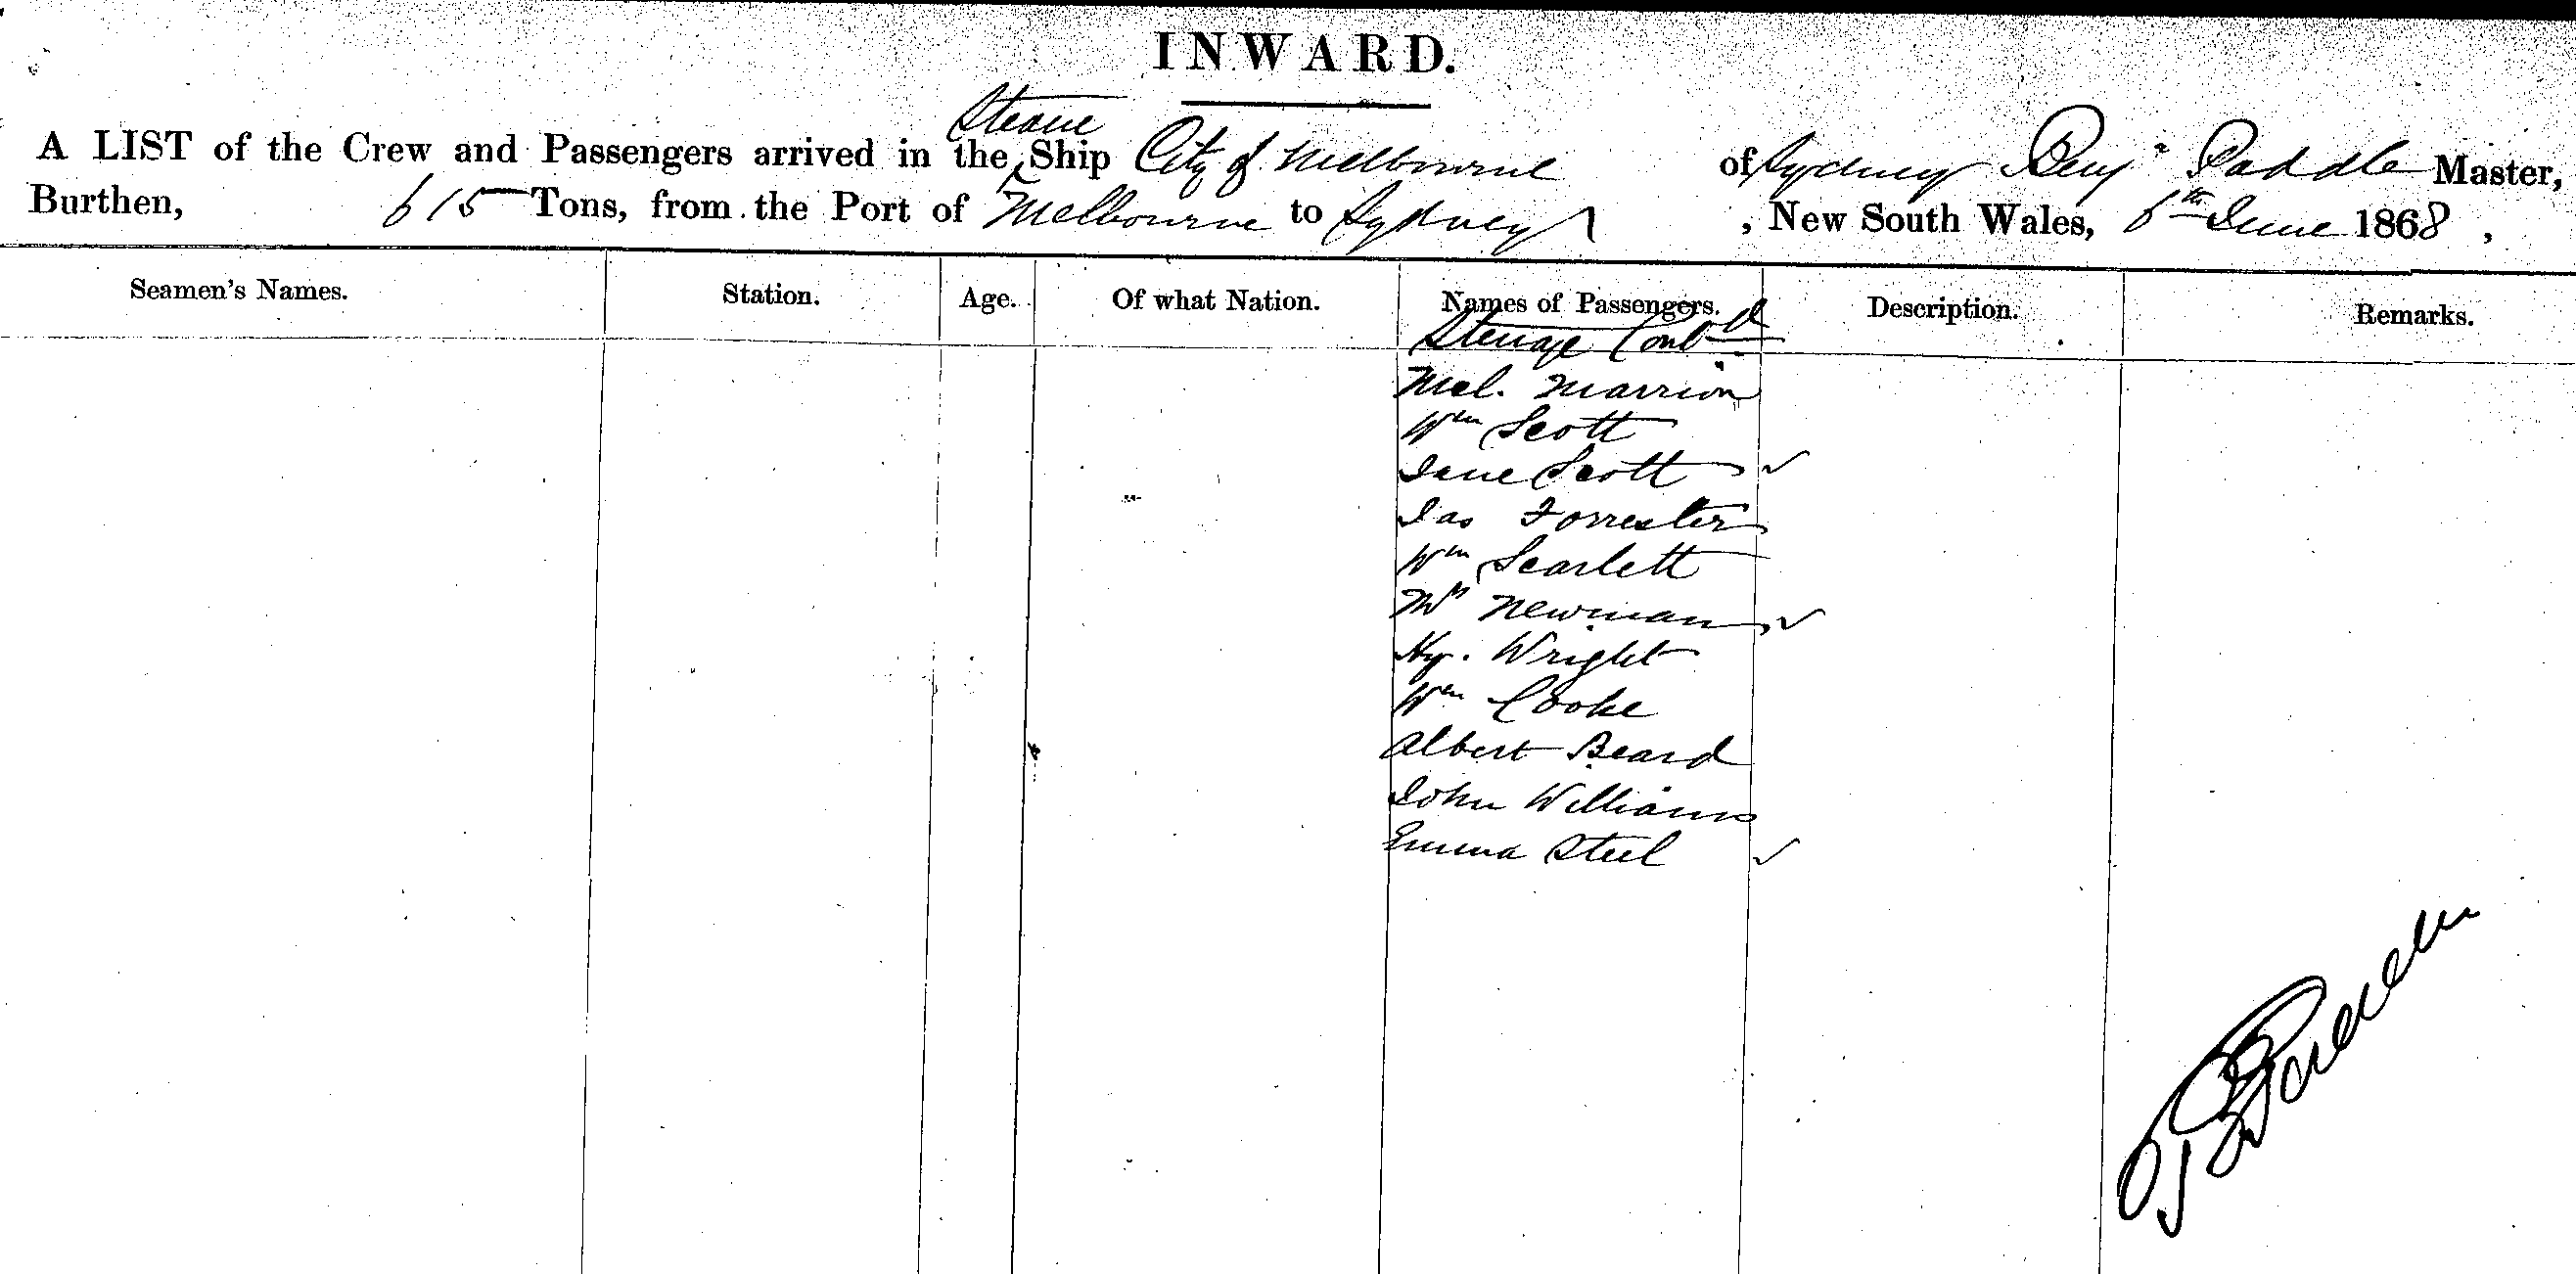 INWARD.
Steam
A LIST of the Crew and Passengers arrived in the Ship City of Melbourne of Sydney Benj Paddle Master,
Burthen, 615 Tons, from the Port of Melbourne to Sydney, New South Wales, 6th June 1868,
Seamen's Names. Station. Age. Of what Nation. Names of Passengers. Description. Remarks.
Steerage Contd
Mcl. Marrion
Wm Scott
Jane Scott ✓
Jas Forrester
Wm Scarlett
Mrs Newman ✓
Hy. Wright
Wm Cooke
Albert Beard
John Williams
Emma Steel ✓